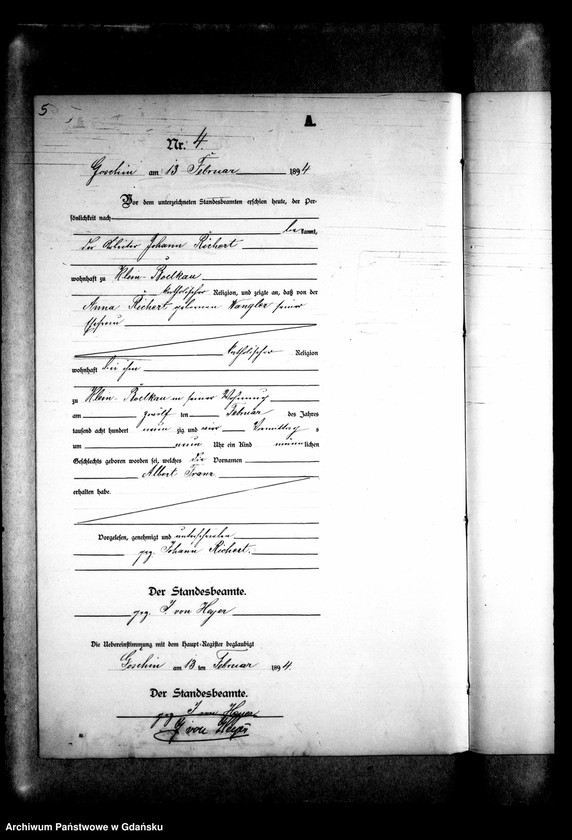 5
A.
Nr. 4
Goschin am 13 Februar 1894
Vor dem unterzeichneten Standesbeamten erschien heute, der Per-
sönlichkeit nach
bekannt,
der Arbeiter Johann Richert
wohnhaft zu Klein-Boelkau
katholischer Religion, und zeigte an, daß von der
Anna Richert geborenen Wangler seiner
Ehefrau
katholischer Religion
wohnhaft bei ihm
zu Klein-Boelkau in seiner Wohnung
am zwölf ten Februar des Jahres
tausend acht hundert neun zig und vier Vormittag s
um neun Uhr ein Kind männlichen
Geschlechts geboren worden sei, welches die Vornamen
Albert Franz
erhalten habe.
Vorgelesen, genehmigt und unterschrieben
gez. Johann Richert.
Der Standesbeamte.
gez. J. von Heyer
Die Uebereinstimmung mit dem Haupt-Register beglaubigt
Goschin am 13 ten Februar 1894.
Der Standesbeamte.
gez J von Heyer
J von Heyer
Archiwum Państwowe w Gdańsku